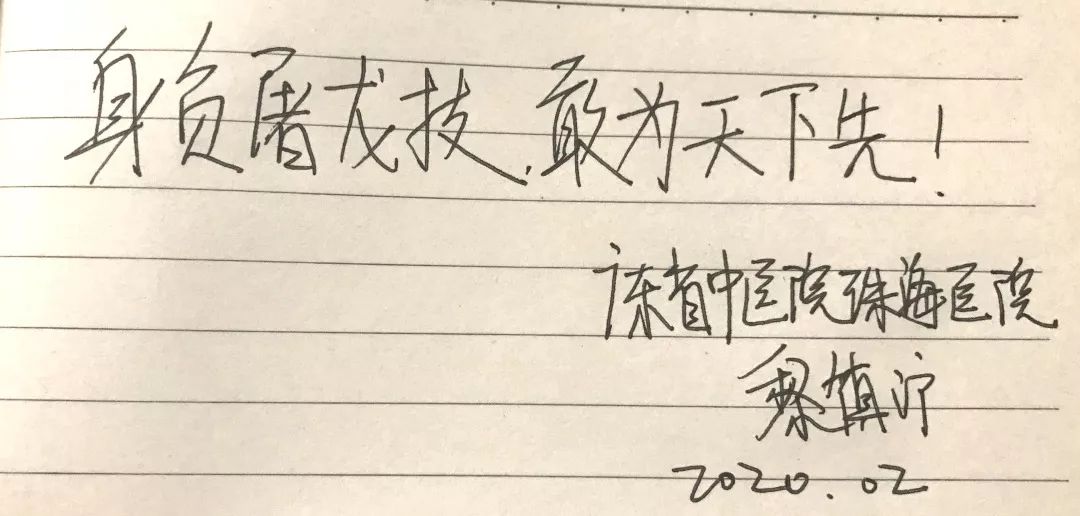 身负屠龙技,敢为天下先!
广东省中医院珠海医院
黎镇
2020.02